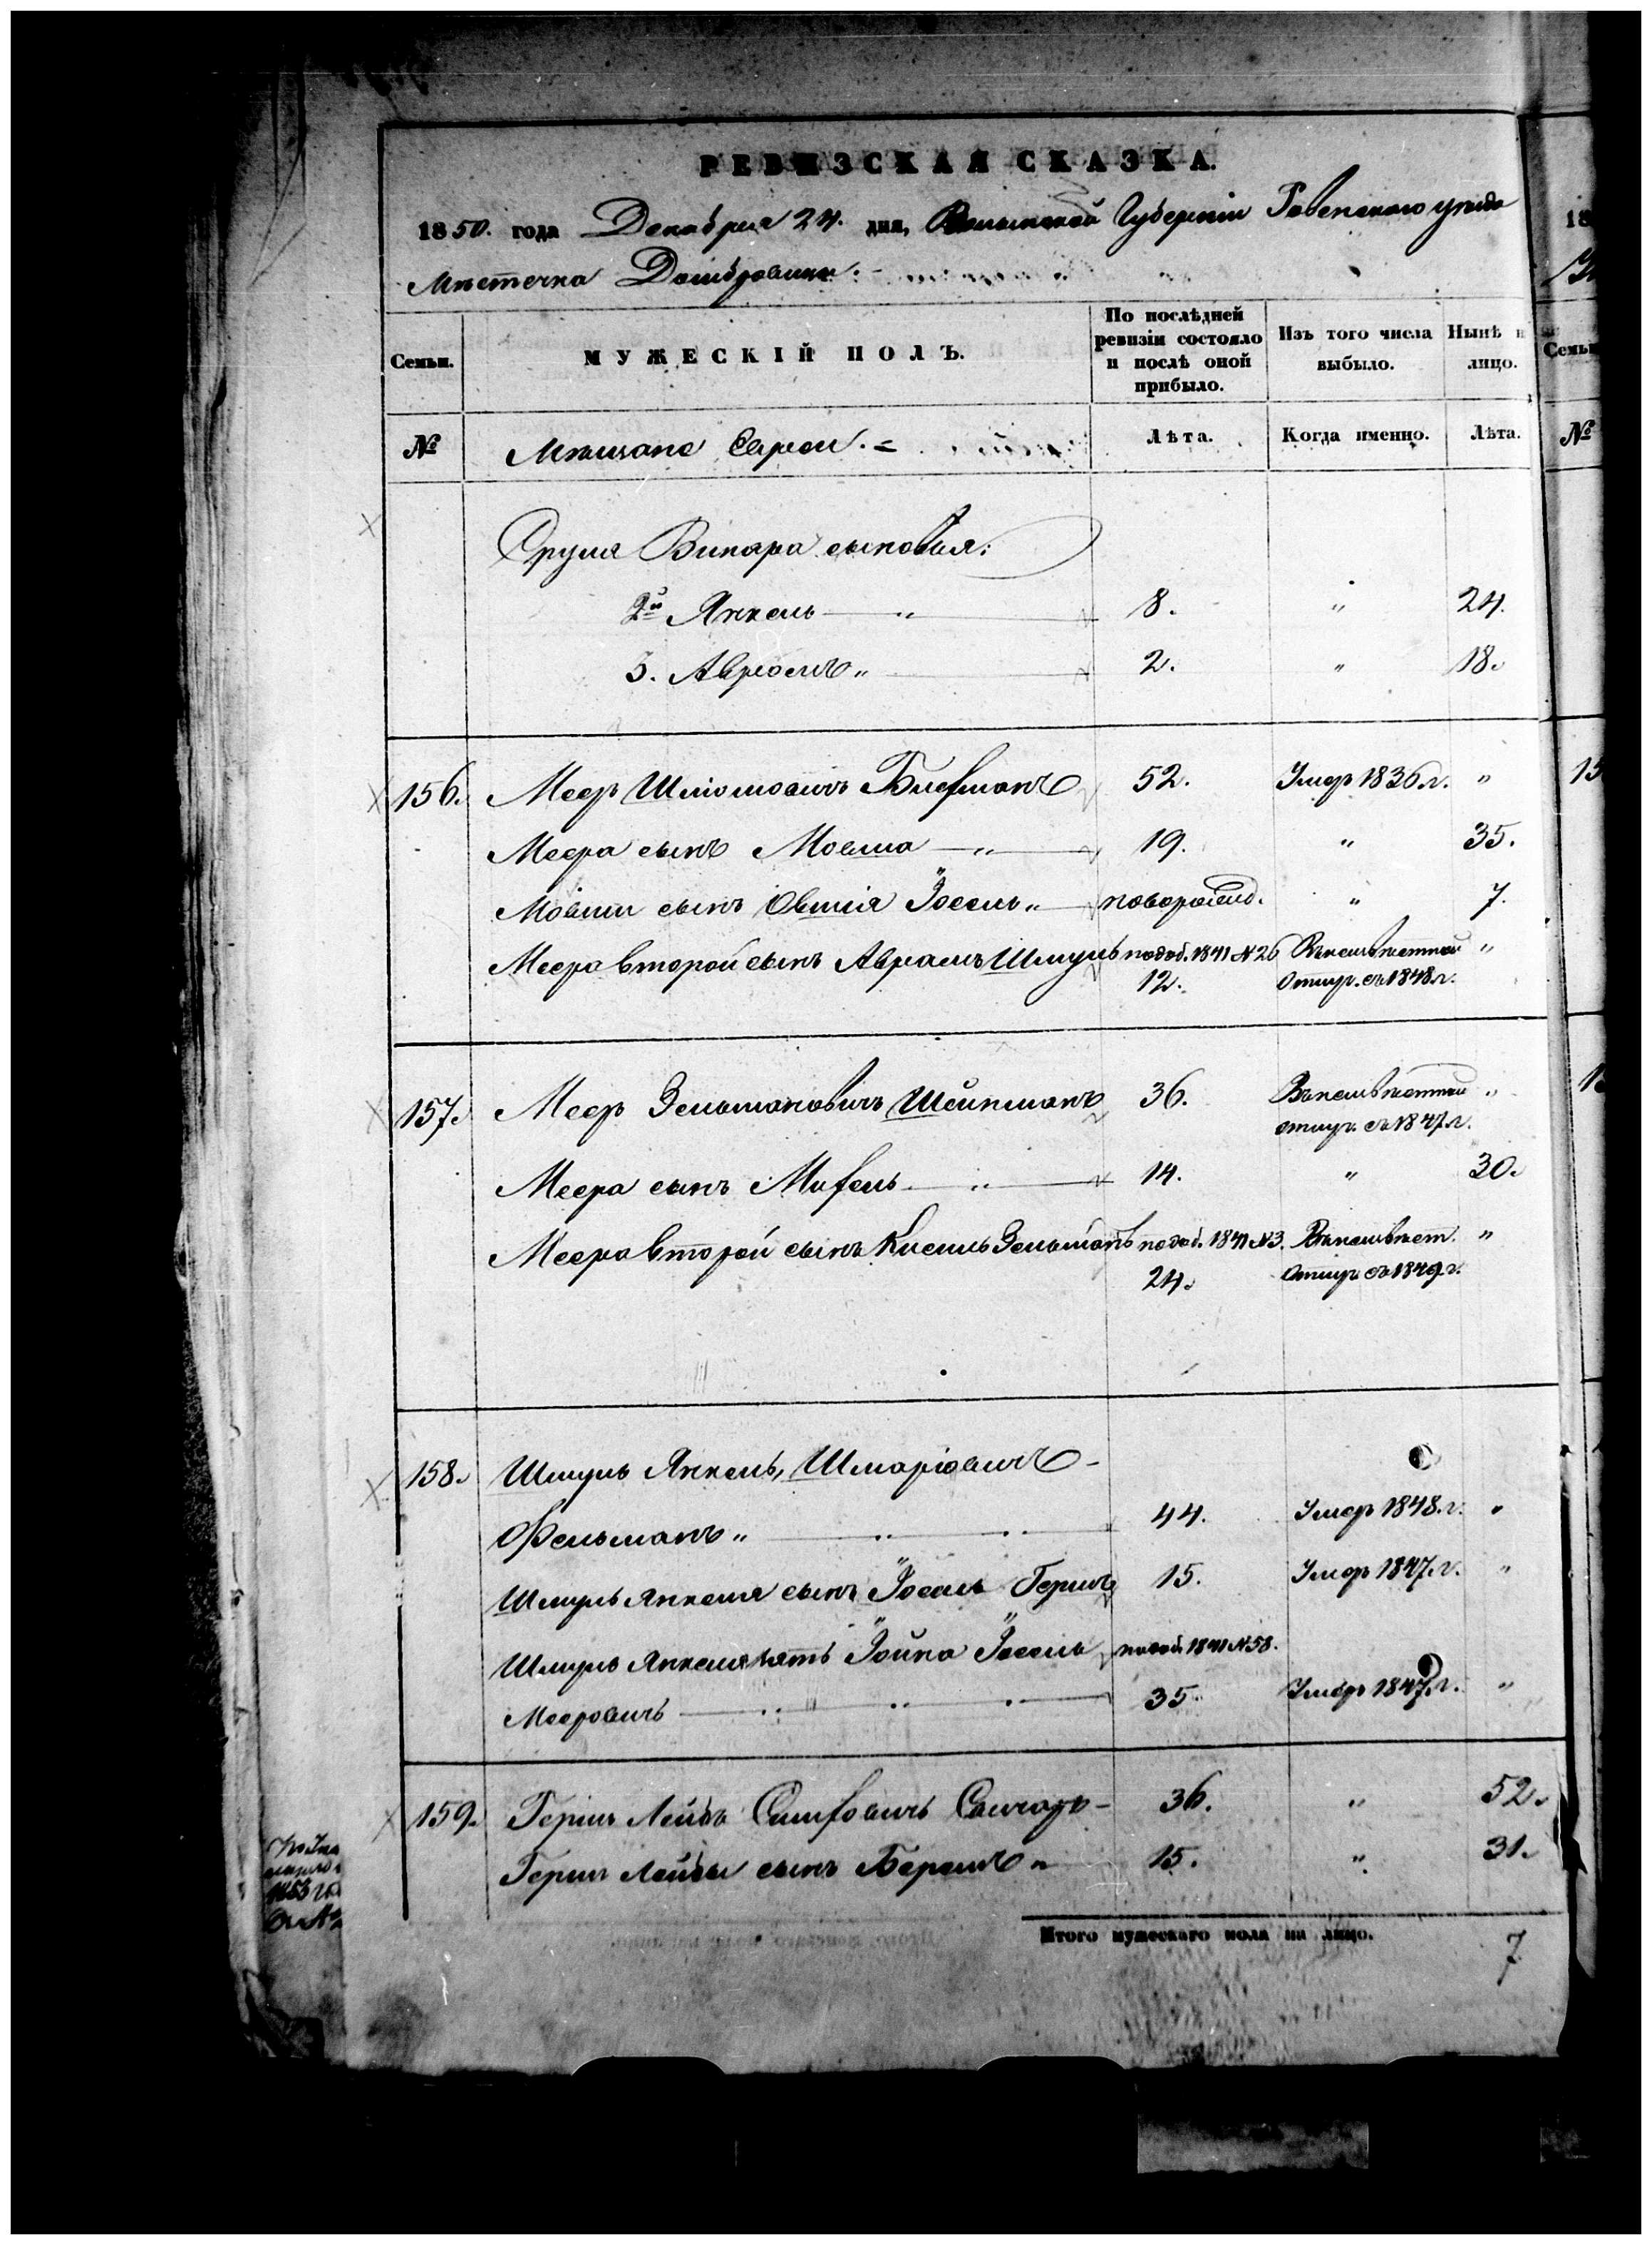 РЕВИЗСКАЯ СКАЗКА.
1850. года Декабря 24. дня, Волынской Губерніи Ровенского уезда
Мѣстечка Домбровицы:
Семьи.
МУЖЕСКІЙ ПОЛЪ.
По послѣдней ревизіи состояло и послѣ оной прибыло.
Изъ того числа выбыло.
Нынѣ н лицо.
№ Мѣщане Евреи. Лѣта. Когда именно. Лѣта.
Сруля Винера сыновья:
2й Янкель " 8. " 24.
3. Авромъ " 2. " 18.
156. Меер Шліомовичъ Близманъ 52. Умер 1836 г. "
Меера сынъ Мовша " 19. " 35.
Мовши сынъ Овшія Іосель " новорожд. " 7.
Меера второй сынъ Аврамъ Шмуль подоб. 1841 № 26 Въ неизвѣстной "
12. Отлуч. съ 1848 г.
157. Меер Зельмановичъ Шейнманъ 36. Въ неизвѣстной "
отлуч. съ 1847 г.
Меера сынъ Мизель " 14. " 30.
Меера второй сынъ Кисель Зельманъ подоб. 1841 № 3. Въ неизвѣст. "
24. Отлуч. съ 1849 г.
158. Шмуль Янкель, Шмаріовичъ
Фельманъ " 44. Умер 1848 г. "
Шмуль Янкеля сынъ Іосель Гершъ 15. Умер 1847 г. "
Шмуль Янкеля зять Іойна Іосель подоб. 1841 № 58.
Мееровичъ 35. Умер 1847 г. "
159. Герш Лейба Симховичъ 36. " 52.
Герш Лейбы сынъ Берель " 15. " 31.
Итого мужескаго пола на лицо. 7